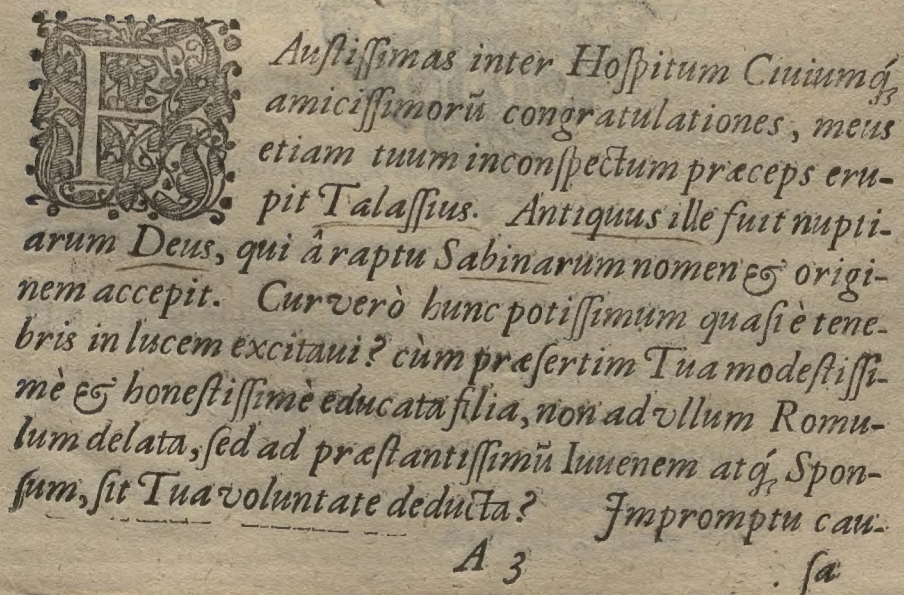 FAuſtiſſimas inter Hoſpitum Ciuiumq́ꝫ
amiciſſimorũ congratulationes, meus
etiam tuum inconſpectum præceps eru-
pit Talaſſius. Antiquus ille fuit nupti-
arum Deus, qui â raptu Sabinarum nomen & origi-
nem accepit. Cur verò hunc potiſſimum quaſi è tene-
bris in lucem excitaui? cùm præſertim Tua modeſtiſſi-
mè & honeſtiſſimè educata filia, non ad vllum Romu-
lum delata, ſed ad præſtantiſſimũ Iuuenem atq́ꝫ Spon-
ſum, ſit Tua voluntate deducta? Impromptu cau-
A 3
ſa